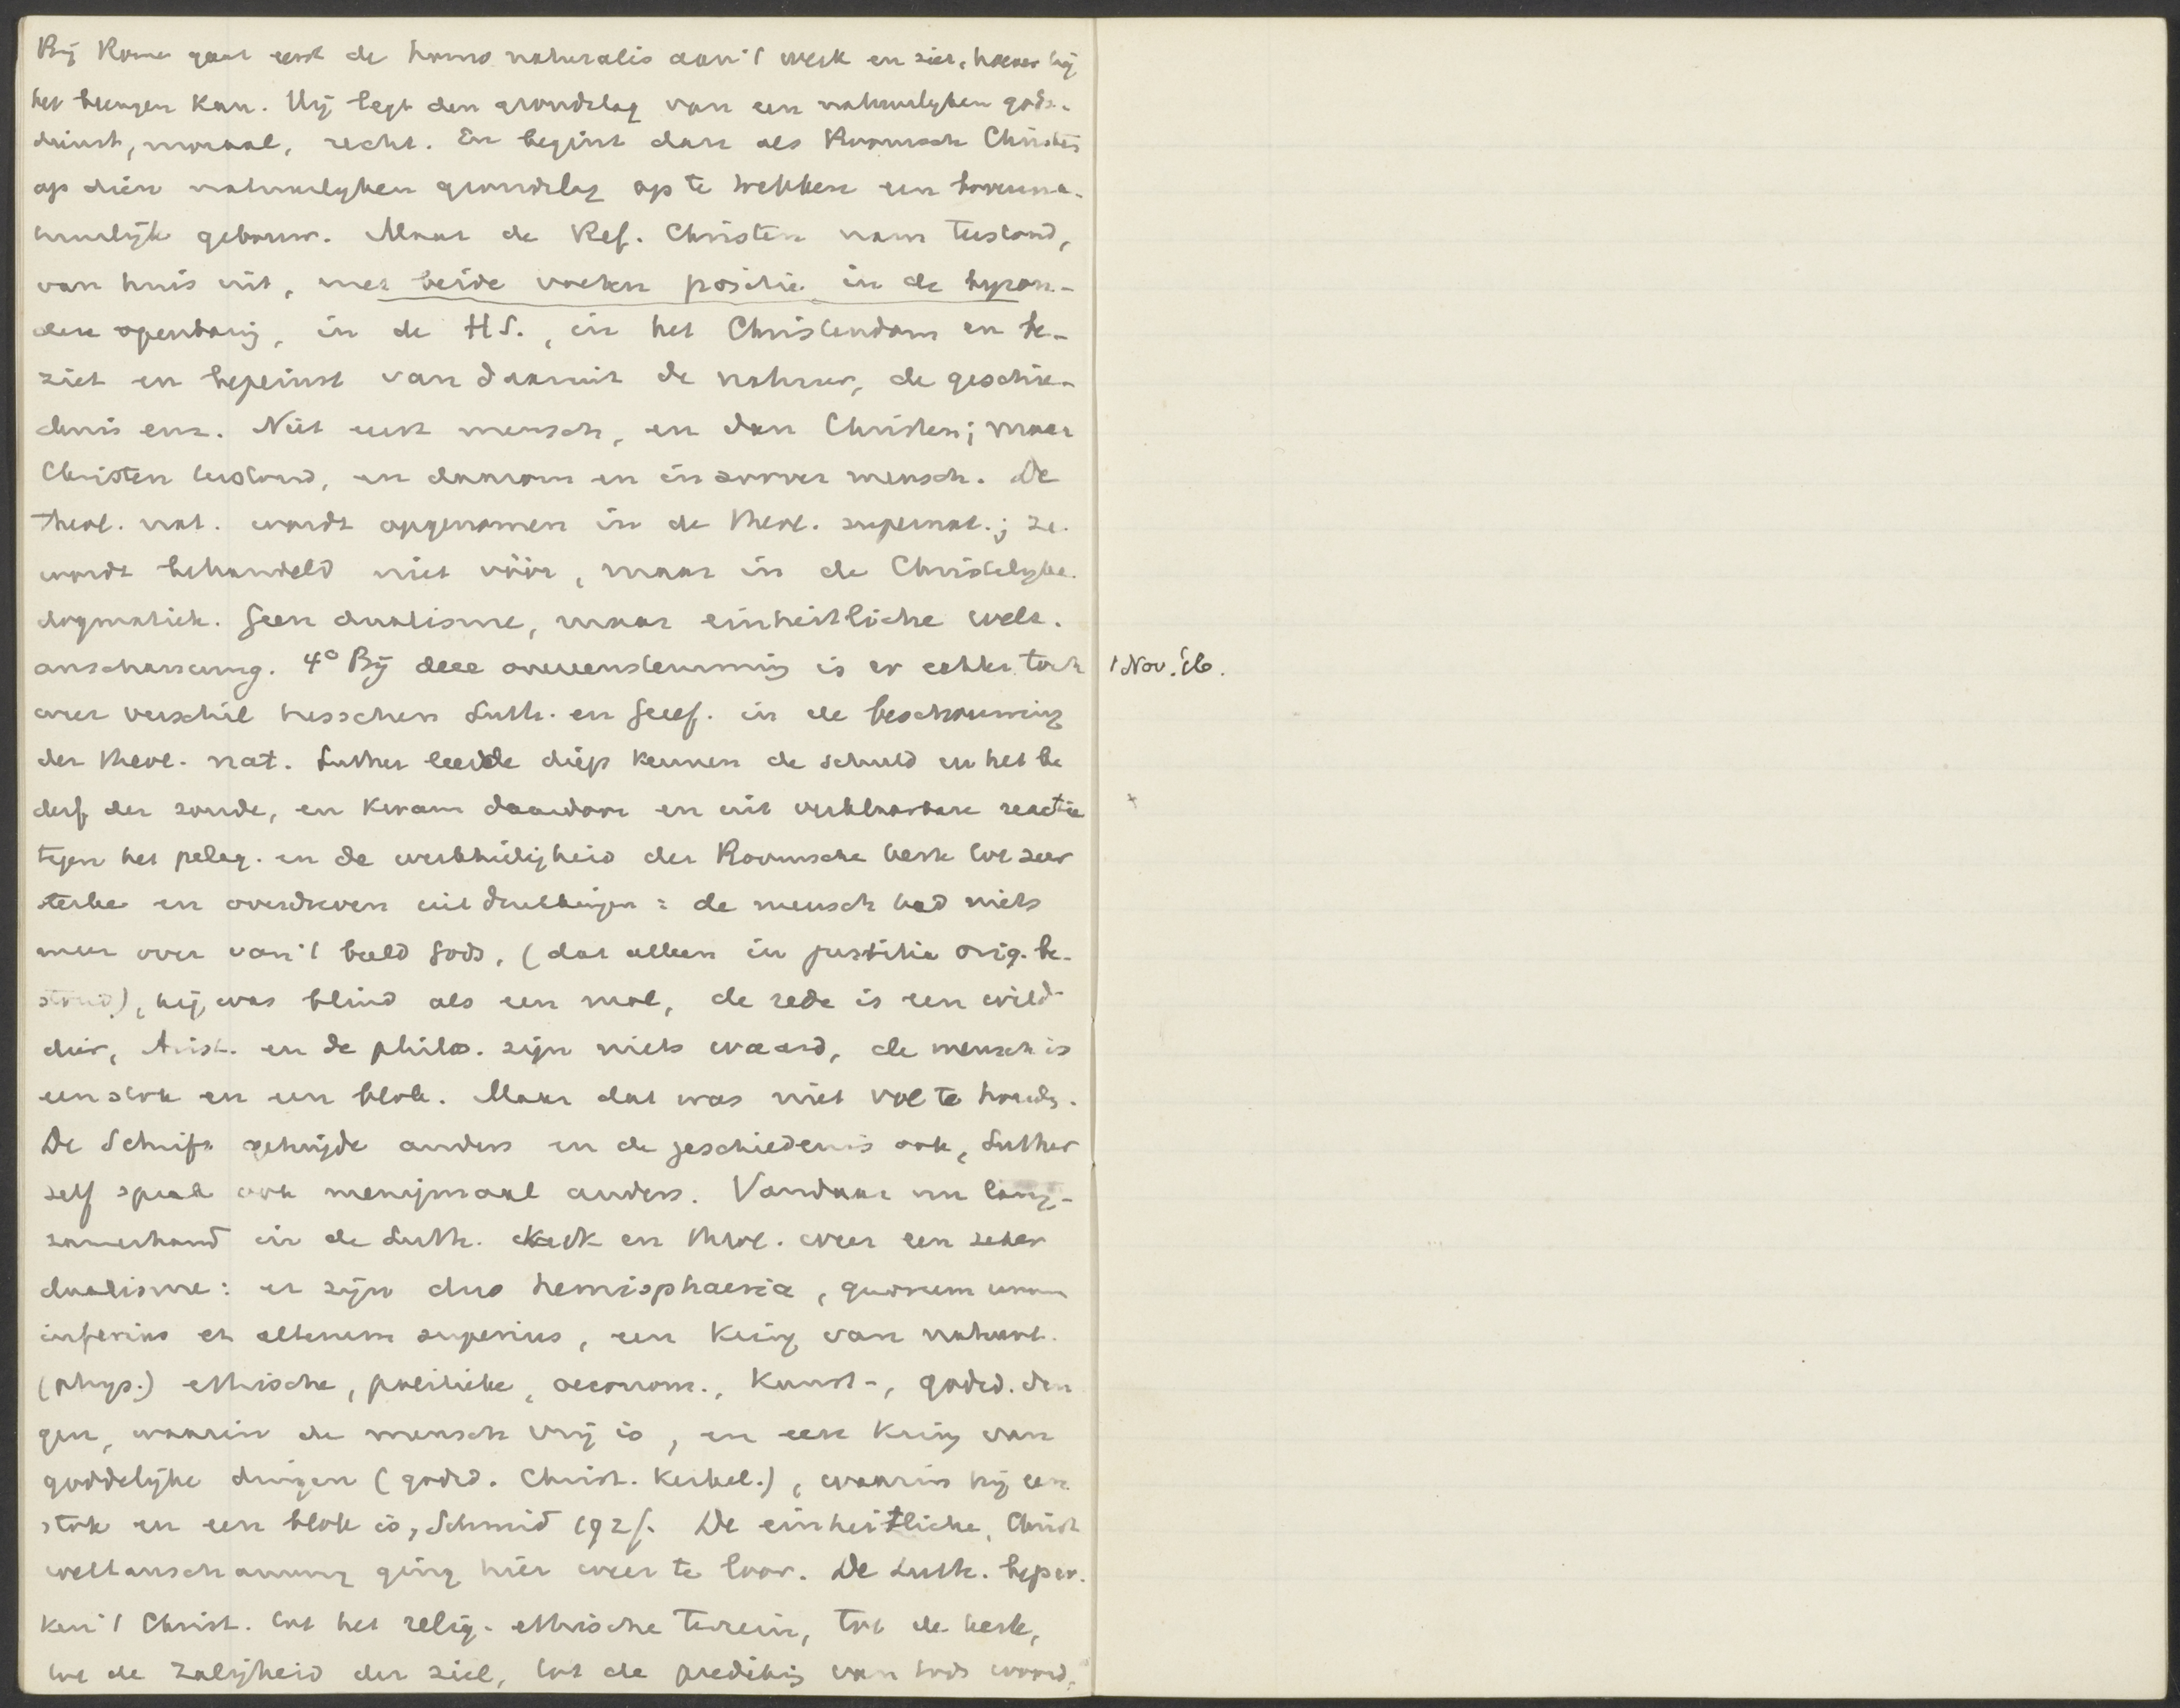 Bij Rome gaat eerst de homo naturalis aan 't werk en ziet, hoever hij
het brengen kan. Hij legt den grondslag van een natuurlyken gods-
dienst, moraal, recht. En begint dan als Roomsch Christen
op dien natuurlyken grondslag op te trekken een bovenna-
tuurlijk gebouw. Maar de Ref. Christen nam terstond,
van huis uit, met beide voeten positie in de byzon-
dere openbaring, in de HS., in het Christendom en be-
ziet en bepeinst van daaruit de natuur, de geschie-
denis enz. Niet eerst mensch, en dan Christen; maar
Christen terstond, en daarom en in zoover mensch. De
theol. nat. wordt opgenomen in de theol. supernat.; ze
wordt behandeld niet vóór, maar in de Christelyke
dogmatiek. Geen dualisme, maar einheitliche welt-
anschauung. 4° Bij deze overeenstemming is er echter toch
weer verschil tusschen Luth. en Geref. in de beschouwing
der theol. nat. Luther leerde diep kennen de schuld en het be
derf der zonde, en kwam daardoor en uit verklaarbare reactie
tegen het pelag. en de werkheiligheid der Roomsche kerk tot zeer
sterke en overdreven uitdrukkingen: de mensch had niets
meer over van 't beeld Gods, (dat alleen in justitia orig. be-
stond), hij was blind als een mol, de rede is een wild
dier, Arist. en de philos. zijn niets waard, de mensch is
een stok en een blok. Maar dat was niet vol te houden.
De Schrift getuigde anders en de geschiedenis ook, Luther
zelf sprak ook menigmaal anders. Vandaar nu lang-
zamerhand in de Luth. kerk en theol. weer een zeker
dualisme: er zijn duo hemisphaeria, quorum unum
inferius et alterum superius, een kring van natuurl.
(phys.) ethische, politieke, oeconom., kunst-, godsd. din
gen, waarin de mensch vrij is, en een kring van
goddelijke dingen (godsd. Christ. kerkel.), waarin hij een
stok en een blok is, Schmid 192f. De einheitliche, Christ
weltanschauung ging hier weer te loor. De Luth. beper-
ken 't Christ. tot het relig.-ethische terrein, tot de kerk,
tot de zaligheid der ziel, tot de prediking van Gods woord,
1 Nov. '16.
+